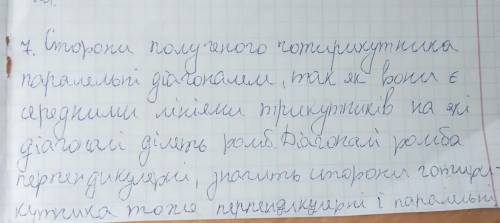 7. Сторони полученого чотирикутника
паралельні діагоналем, так як вони є
середними лініями трикутників на які
діагоналі ділеть ромб. Діагоналі ромба
перпендикулярні, значить сторони чотирі-
кутника тоже перпендикулярні і паралельні